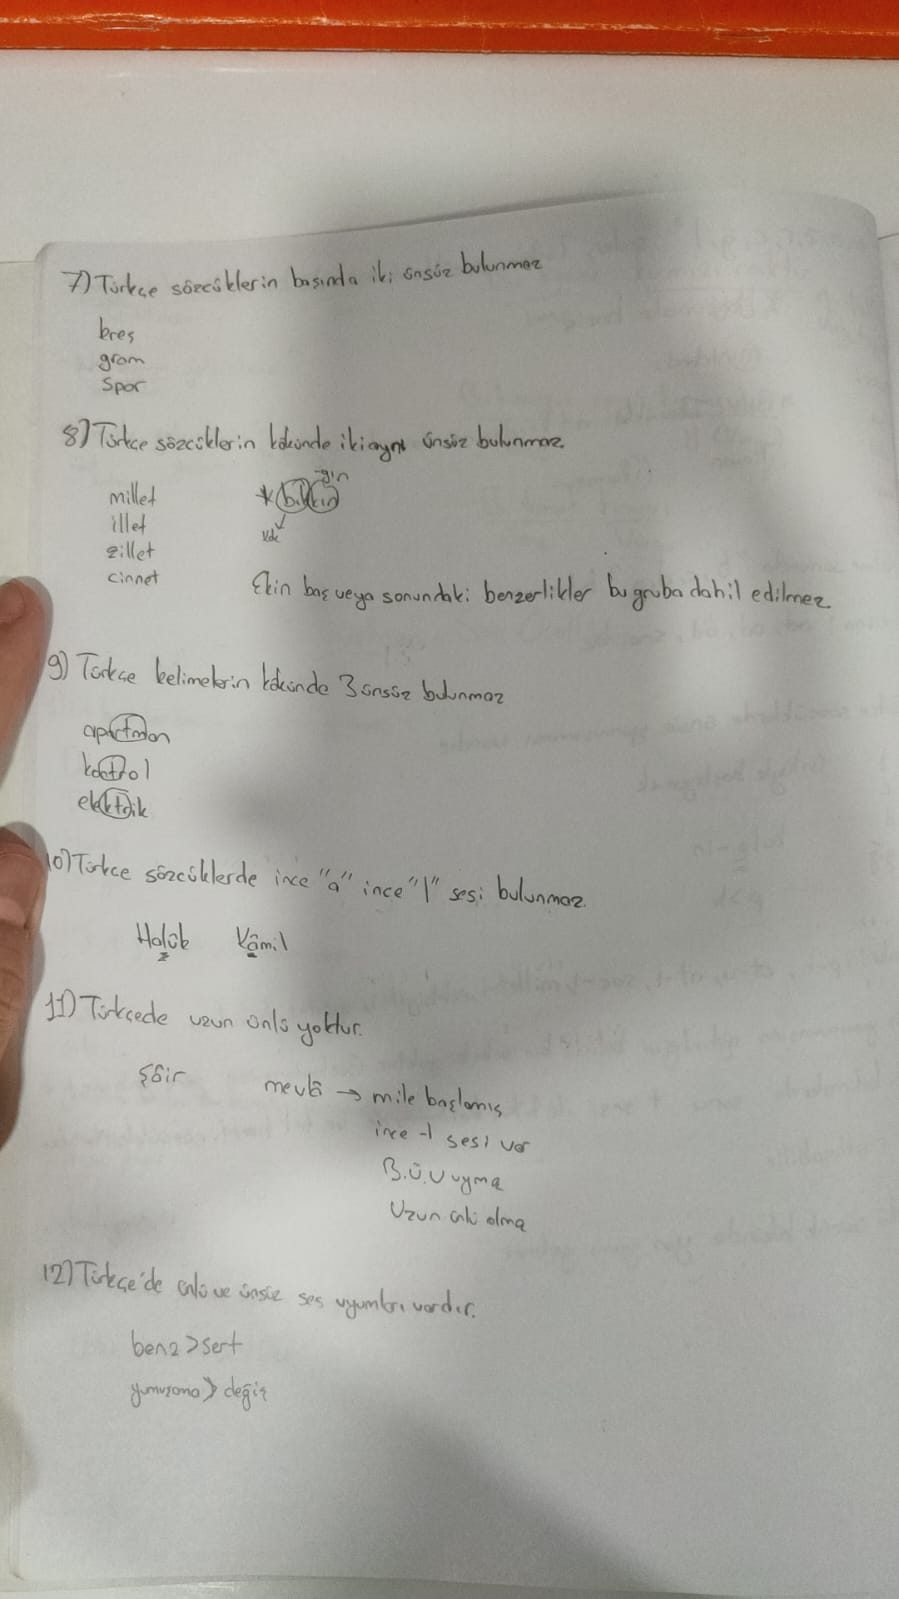 7) Türkçe sözcüklerin başında iki ünsüz bulunmaz
kreş
gram
spor
8) Türkçe sözcüklerin kökünde iki aynı ünsüz bulunmaz.
-gin
millet * bitkin
illet kök
zillet
cinnet Ekin baş veya sonundaki benzerlikler bu gruba dahil edilmez
9) Türkçe kelimelerin kökünde 3 ünsüz bulunmaz
apartman
kontrol
elektrik
10) Türkçe sözcüklerde ince "a" ince "l" sesi bulunmaz.
Halûk Kâmil
11) Türkçede uzun ünlü yoktur.
şâir mevlâ → m ile başlamış
ince -l sesi var
B.Ü.U uyma
Uzun ünlü olma
12) Türkçe'de ünlü ve ünsüz ses uyumları vardır.
benz > sert
yumuşama > değiş